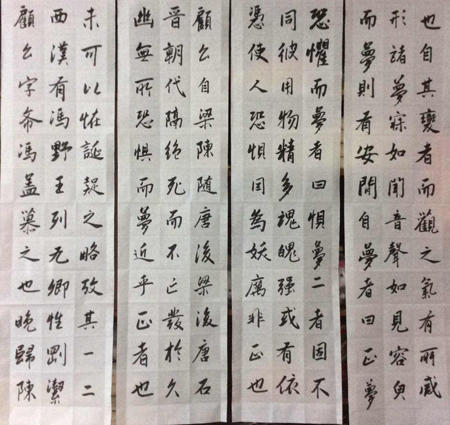 也自其變者而觀之氣有所感
形諸夢寐如聞音聲如見容皃
而夢則有安閒自夢者曰正夢
恐懼而夢者曰惧夢二者固不
同彼用物精多魂魄强或有依
憑使人恐惧固為妖厲非正也
顧公自梁陳随唐後梁後唐石
晉朝代隔絶死而不亡發於久
幽無所恐惧而夢近乎正者也
未可以恠誕疑之略攷其一二
西漢有馮野王列九卿性剛潔
顧公字希馮盖慕之也晚歸陳